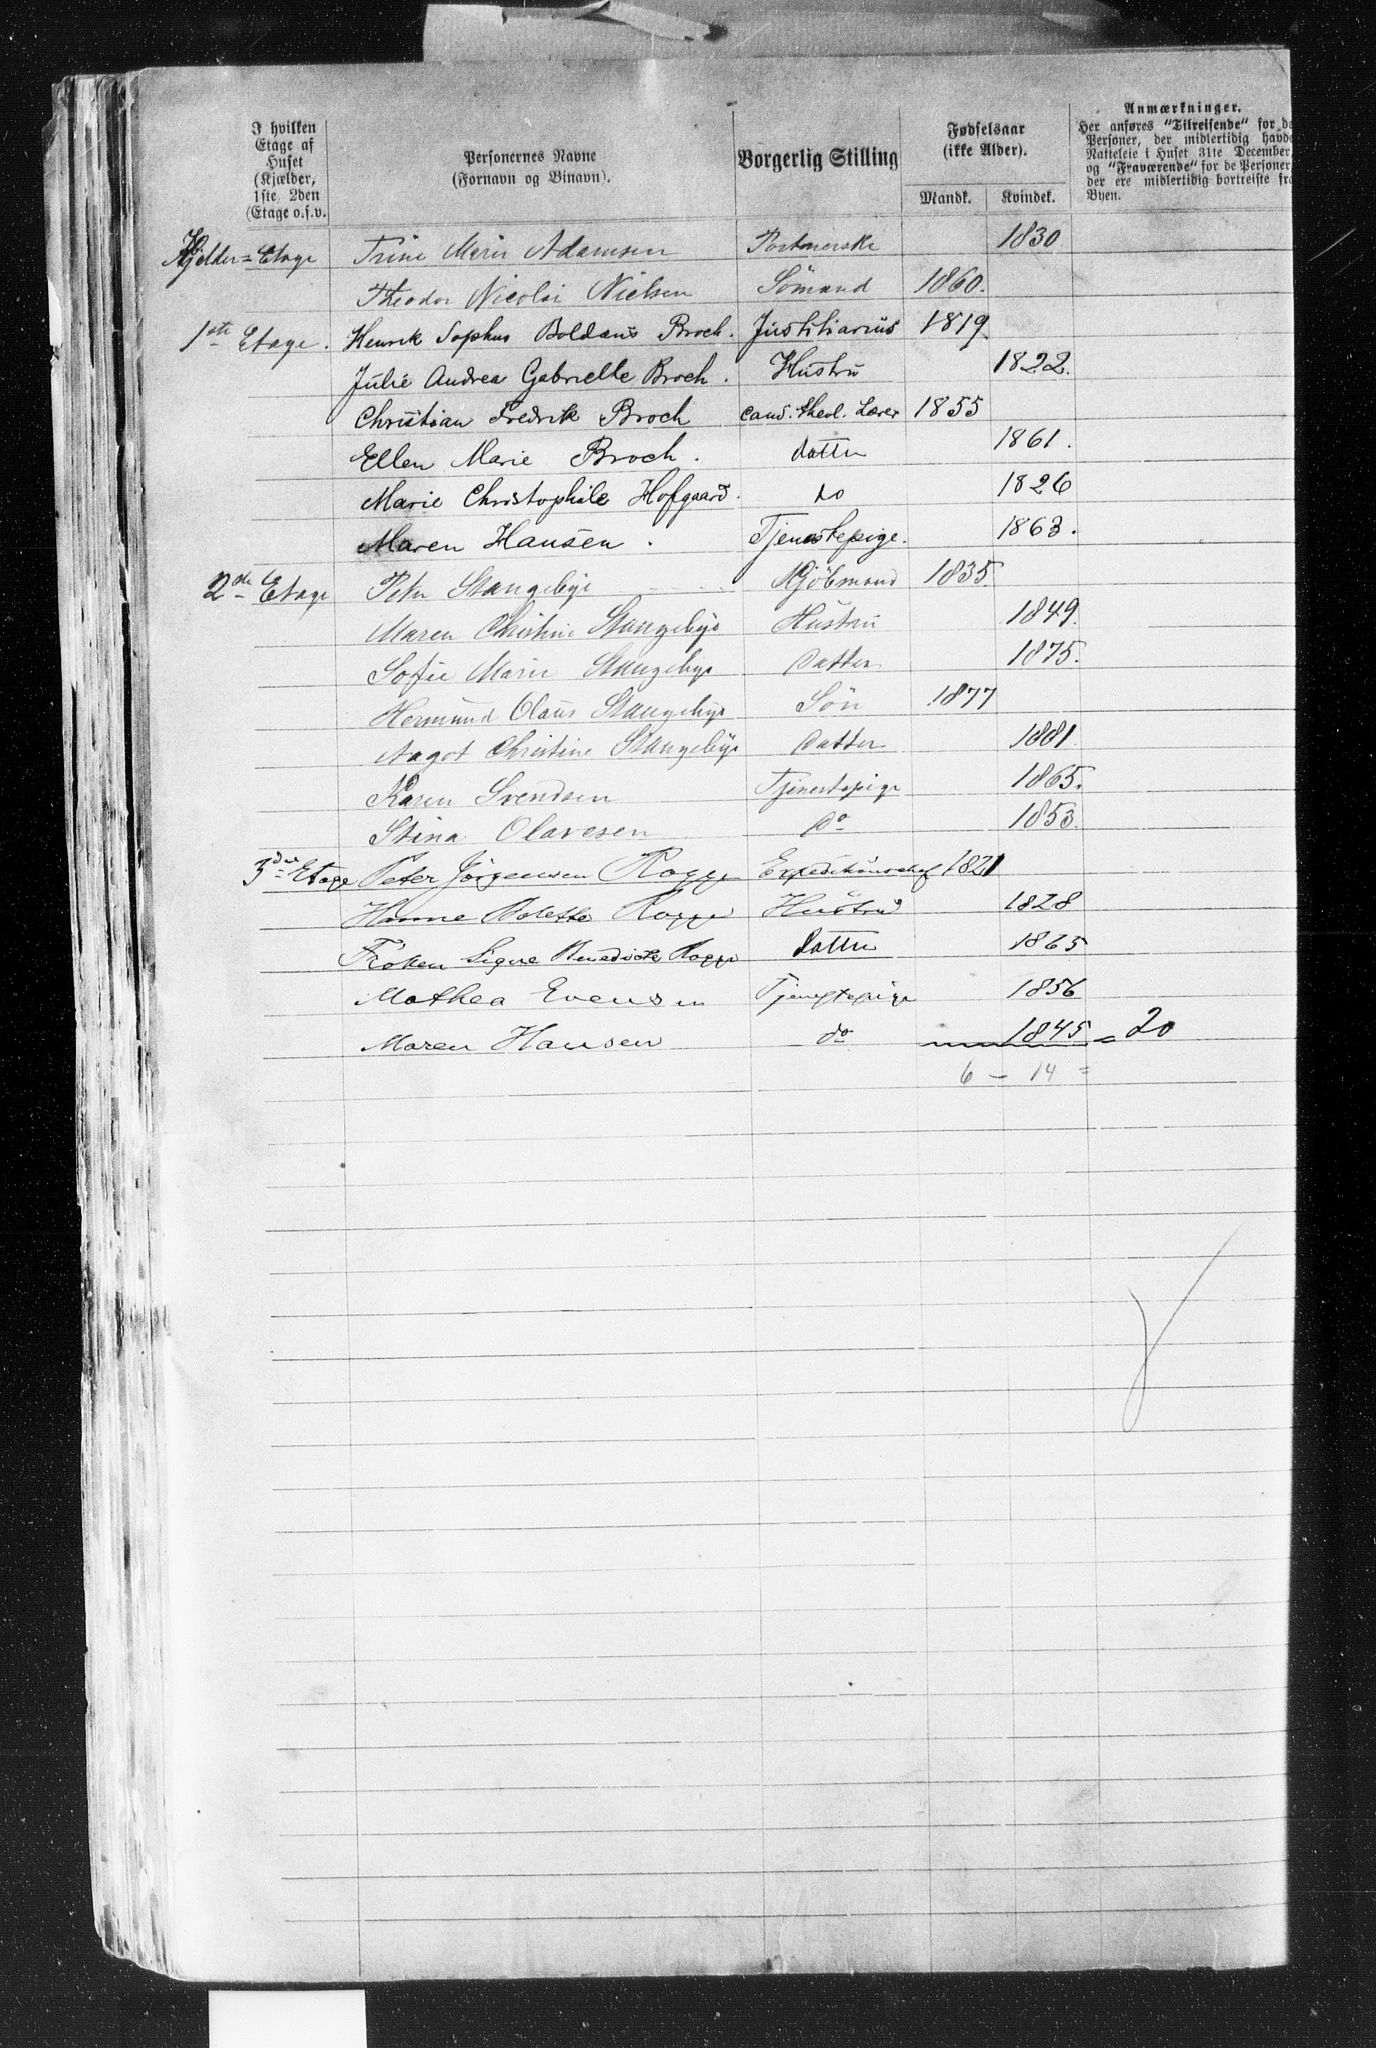 I hvilken Etage af Huset (Kjælder, 1ste 2den Etage o.s.v.
Personernes Navne (Fornavn og Binavn).
Borgerlig Stilling
Fødselsaar (ikke Alder).
Mandk. Kvindek.
Anmærkninger.
Her anføres "Tilreisende" for de
Personer, der midlertidig havde
Natteleie i Huset 31te December,
og "Fraværende" for de Personer,
der ere midlertidig bortreiste fra
Byen.
Kjelder=Etage Trine Marie Adamsen Portnerske 1830
Theodor Nicolai Nielsen Sömand 1860.
1ste Etage. Henrik Sophus Boldaüs Broch. Jüstitiarius 1819
Julie Andrea Gabrielle Broch. Hüstrü 1822.
Christian Fredrik Broch cand. theol. Lærer 1855
Ellen Marie Broch. datter 1861.
Marie Christophile Hofgaard. do 1826
Maren Hansen. Tjenestepige. 1863.
2de Etage Peter Stangebye Kjöbmand 1835.
Maren Christine Stangebye Hüstrü 1849.
Sofie Marie Stangebye Datter 1875.
Hermünd Olaüs Stangebye Sön 1877
Aagot Christine Stangebye Datter 1881
Karen Svendsen Tjenestepige 1865.
Stina Olavesen Do 1853.
3die Etage Peter Jörgensen Rogge Expeditionschef 1821
Hanne Bolette Rogge Hüstrü 1828
Fröken Signe Benedicte Rogge Datter 1865
Mathea Evensen Tjenestepige 1856
Maren Hansen do 1845 = 20
6 — 14 =